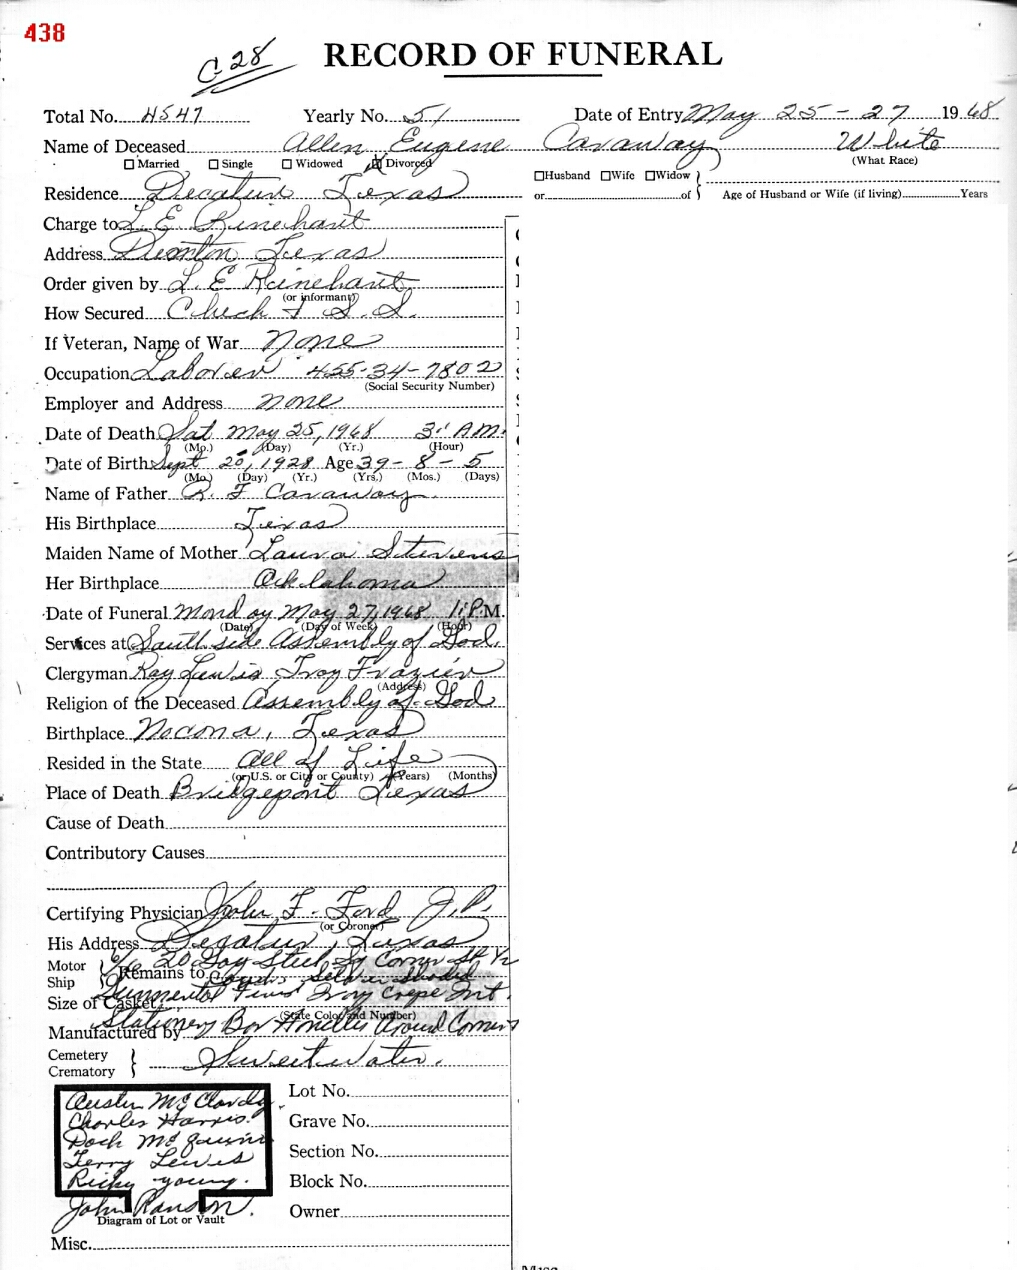 438
C-28
RECORD OF FUNERAL
Total No. 4547 Yearly No. 51 Date of Entry May 25-27 1968
Name of Deceased Allen Eugene Caraway White
☐ Married ☐ Single ☐ Widowed ☒ Divorced (What Race)
☐ Husband ☐ Wife ☐ Widow
Residence Decatur Texas or of Age of Husband or Wife (if living) Years
Charge to L. E. Rinehart
Address Denton Texas
Order given by L. E Rinehart
(or informant)
How Secured Check + S. S.
If Veteran, Name of War None
Occupation Laborer 455-34-7802
(Social Security Number)
Employer and Address none
Date of Death Sat May 25, 1968 3: A.M.
(Mo.) (Day) (Yr.) (Hour)
Date of Birth Sept 20, 1928 Age 39-8-5
(Mo.) (Day) (Yr.) (Yrs.) (Mos.) (Days)
Name of Father R. F Caraway
His Birthplace Texas
Maiden Name of Mother Laura Stevens
Her Birthplace Oklahoma
Date of Funeral Monday May 27, 1968 1: P.M.
(Date) (Day of Week) (Hour)
Services at South side Assembly of God.
Clergyman Ray Lewis, Troy Frazier
(Address)
Religion of the Deceased Assembly of God
Birthplace Nocona, Texas
Resided in the State All of Life
(or U.S. or City or County) (Years) (Months)
Place of Death Bridgeport Texas
Cause of Death
Contributory Causes
Certifying Physician John F. Ford J.P.
(or Coroner)
His Address Decatur, Texas
Motor 6/6 20 Gay Steel Sq Corner
Ship Remains to Silver Shaded
Size of Casket Finis Ivory Crepe Int.
(State Color and Number)
Manufactured by Stationery Bar Handles Around Corners
Cemetery
Crematory Sweetwater.
Austin McClardy
Charles Harris.
Dock
Terry Lewis
Ricky Young.
John Ranson.
Diagram of Lot or Vault
Lot No.
Grave No.
Section No.
Block No.
Owner
Misc.